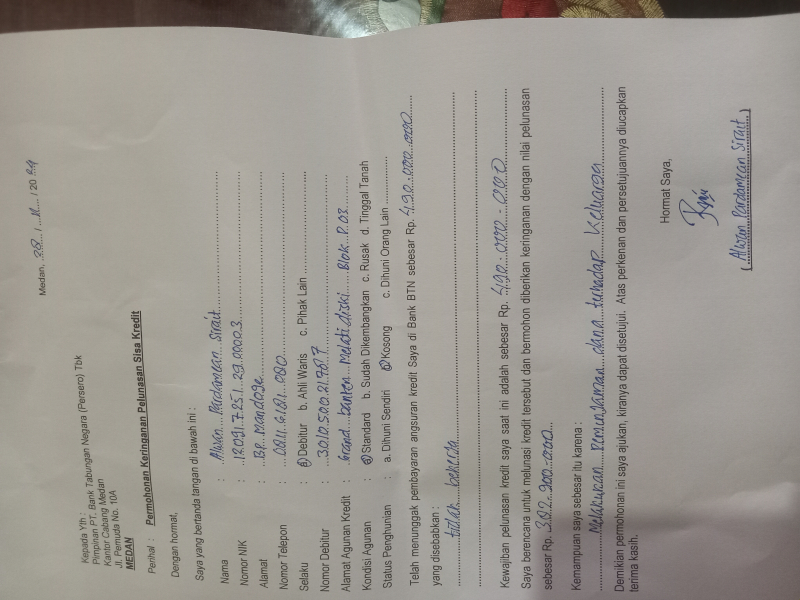 Medan, 28 / 11 / 20 24
Kepada Yth :
Pimpinan PT. Bank Tabungan Negara (Persero) Tbk
Kantor Cabang Medan
Jl. Pemuda No. 10A
MEDAN
Perihal : Permohonan Keringanan Pelunasan Sisa Kredit
Dengan hormat,
Saya yang bertanda tangan di bawah ini :
Nama : Alwan Pardamean Sirait
Nomor NIK :
Alamat : BP. Mandoge
Nomor Telepon :
Selaku : a) Debitur b. Ahli Waris c. Pihak Lain
Nomor Debitur :
Alamat Agunan Kredit : Grand banten Melati diski Blok P.03
Kondisi Agunan : a) Standard b. Sudah Dikembangkan c. Rusak d. Tinggal Tanah
Status Penghunian : a. Dihuni Sendiri b) Kosong c. Dihuni Orang Lain
Telah menunggak pembayaran angsuran kredit Saya di Bank BTN sebesar Rp. 490.000.000
yang disebabkan :
tidak bekerja
Kewajiban pelunasan kredit saya saat ini adalah sebesar Rp. 490.000.000
Saya berencana untuk melunasi kredit tersebut dan bermohon diberikan keringanan dengan nilai pelunasan
sebesar Rp. 382.900.000
Kemampuan saya sebesar itu karena :
Melakukan Peminjaman dana terhadap Keluarga
Demikian permohonan ini saya ajukan, kiranya dapat disetujui. Atas perkenan dan persetujuannya diucapkan
terima kasih.
Hormat Saya,
(Alwan Pardamean Sirait)